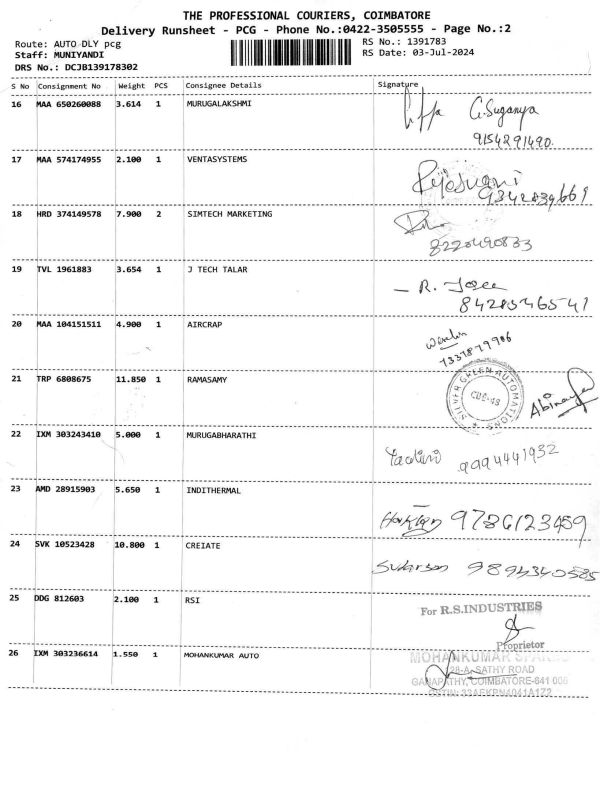 THE PROFESSIONAL COURIERS, COIMBATORE
Delivery Runsheet - PCG - Phone No.:0422-3505555 - Page No.:2
Route: AUTO DLY pcg RS No.: 1391783
Staff: MUNIYANDI RS Date: 03-Jul-2024
DRS No.: DCJB139178302
S No Consignment No Weight PCS Consignee Details Signature
16 MAA 650260088 3.614 1 MURUGALAKSHMI G.Suganya
9154291490.
17 MAA 574174955 2.100 1 VENTASYSTEMS
9342839669
18 HRD 374149578 7.900 2 SIMTECH MARKETING
8220490833
19 TVL 1961883 3.654 1 J TECH TALAR - R. Josee
8428546541
20 MAA 104151511 4.900 1 AIRCRAP
7337879986
21 TRP 6808675 11.850 1 RAMASAMY SILVER GREEN AUTOMATIONS
CBE-48
22 IXM 303243410 5.000 1 MURUGABHARATHI
9994441932
23 AMD 28915903 5.650 1 INDITHERMAL
9786123459
24 SVK 10523428 10.800 1 CREIATE
9894340585
25 DDG 812603 2.100 1 RSI For R.S.INDUSTRIES
Proprietor
26 IXM 303236614 1.550 1 MOHANKUMAR AUTO MOHANKUMAR
28-A, SATHY ROAD
GANAPATHY, COIMBATORE-641 006